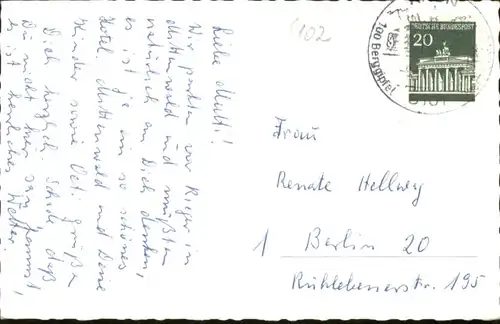 Liebe Mutti!
Wir parken vor Rieger in
Mittenwald und mußten
natürlich an Dich denken,
es ist ja ein so schönes
Hotel. Mittenwald und Deine
Kinder sowie Oeti grüßen
Dich herzlich. Schade, daß
Du nicht hier sein kannst,
es ist herrliches Wetter.
6102
DEUTSCHE BUNDESPOST
20
100 Berggipfel
Frau
Renate Hellwig
1 Berlin 20
Ruhlebenerstr. 195